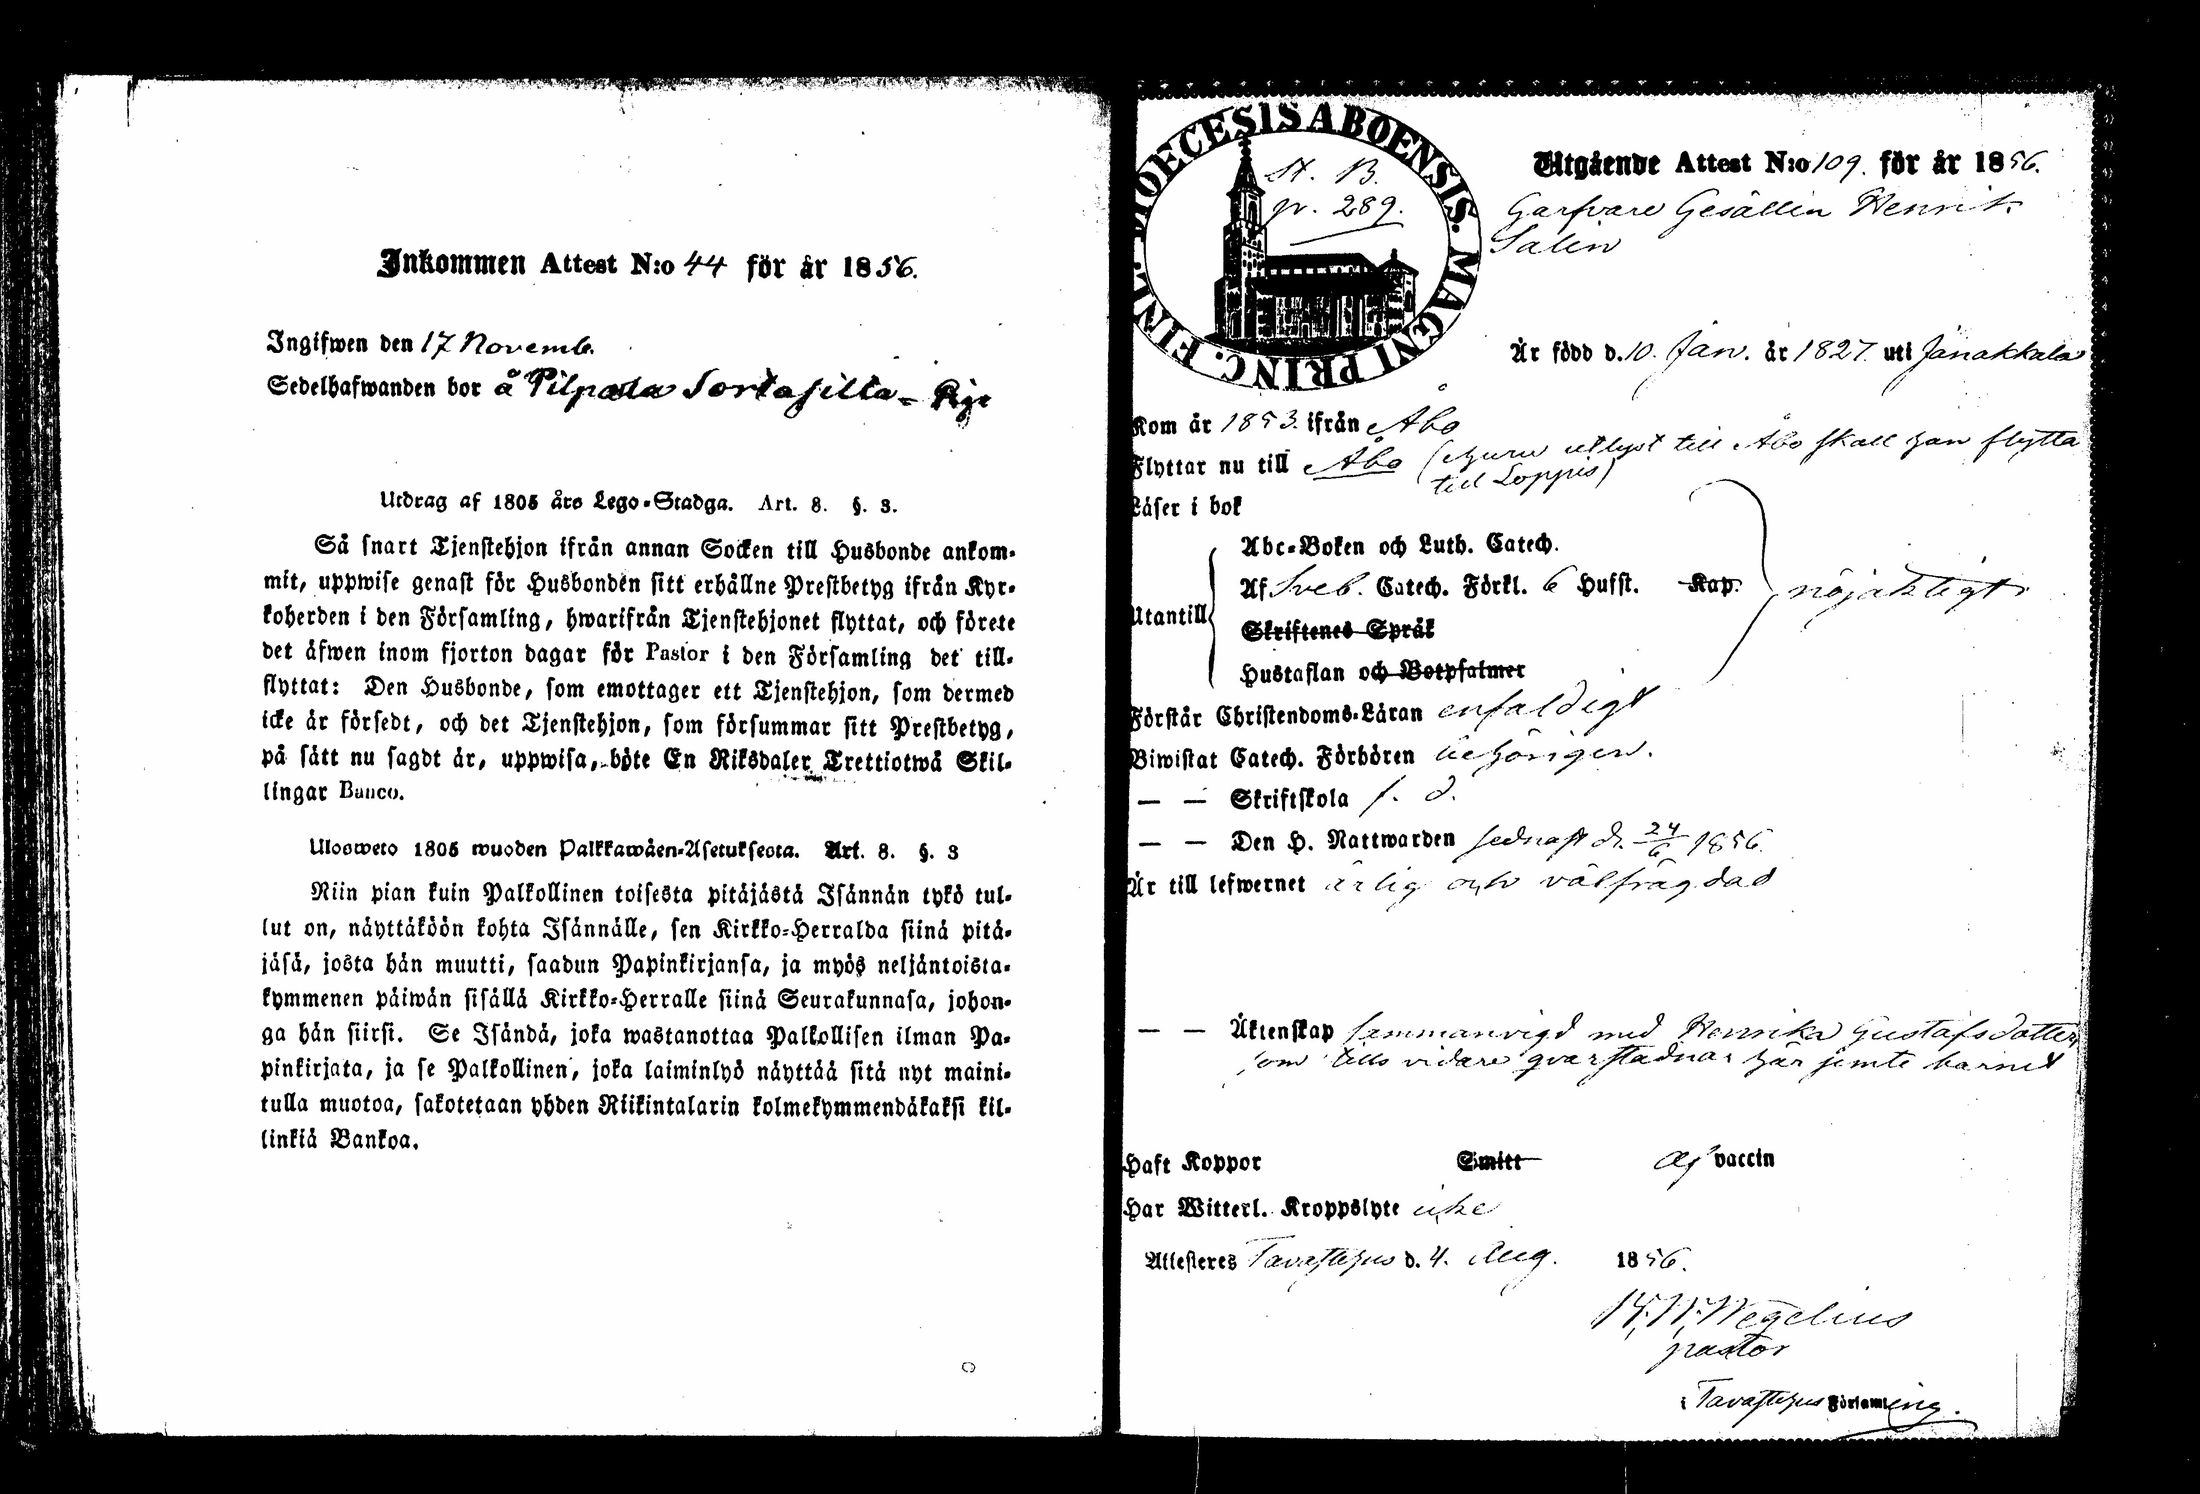 Inkommen Attest N:o 44 för år 1856.
Ingifwen den 17 Novemb.
Sedelhafwanden bor å Pilpala Sortasilla
Utdrag af 1805 års Lego-Stadga. Art. 8. §. 3.
Så snart Tjenstehjon ifrån annan Socken till Husbonde ankom-
mit, uppwise genast för Husbonden sitt erhållne Prestbetyg ifrån Kyr-
koherden i den Församling, hwarifrån Tjenstehjonet flyttat, och förete
det äfwen inom fjorton dagar för Pastor i den Församling det till-
flyttat: Den Husbonde, som emottager ett Tjenstehjon, som dermed
icke är försedt, och det Tjenstehjon, som försummar sitt Prestbetyg,
på sätt nu sagdt är, uppwisa, böte En Riksdaler Trettiotwå Skil-
lingar Banco.
Ulosweto 1805 wuoden Palkkawäen-Asetuksesta. Art. 8. §. 3
Niin pian kuin Palkollinen toisesta pitäjästä Isännän tykö tul-
lut on, näyttäköön kohta Isännälle, sen Kirkko-Herralda siinä pitä-
jäsä, josta hän muutti, saadun Papinkirjansa, ja myös neljäntoista-
kymmenen päiwän sisällä Kirkko-Herralle siinä Seurakunnasa, johon-
ga hän siirsi. Se Isändä, joka wastanottaa Palkollisen ilman Pa-
pinkirjata, ja se Palkollinen, joka laiminlyö näyttää sitä nyt maini-
tulla muotoa, sakotetaan yhden Riikintalarin kolmekymmendäkaksi kil-
linkiä Bankoa.
DIOECESIS ABOENSIS. MAGNI PRINC. FINL.
St. B.
p. 289.
Utgående Attest N:o 109. för år 1856.
Garfvare Gesällen Henrik
Salin
Är född d. 10. Jan. år 1827. uti Janakkala
Kom år 1853. ifrån Åbo
Flyttar nu till Åbo (ehuru utlyst till Åbo skall han flytta
till Loppis)
Läser i bok
Abc-Boken och Luth. Catech.
Utantill
Af Sveb. Catech. Förkl. 6 Hufst. Kap. nöjaktigt
Skriftenes Språk
Hustaflan och Botpsalmer
Förstår Christendoms-Läran enfaldigt
Biwistat Catech. Förhören behörigen.
— — Skriftskola s. d.
— — Den H. Nattwarden sednast d. 24/6 1856.
Är till lefwernet ärlig och välfrägdad
— — Äktenskap sammanvigd med Henrika Gustafsdotter,
som tills vidare qvarstadnar här jemte barnet
Haft Koppor Smitt af vaccin
Har Witterl. Kroppslyte icke
Attesteres Tavastehus d. 4. Aug. 1856.
Wegelius
pastor
i Tavastehus Församling.